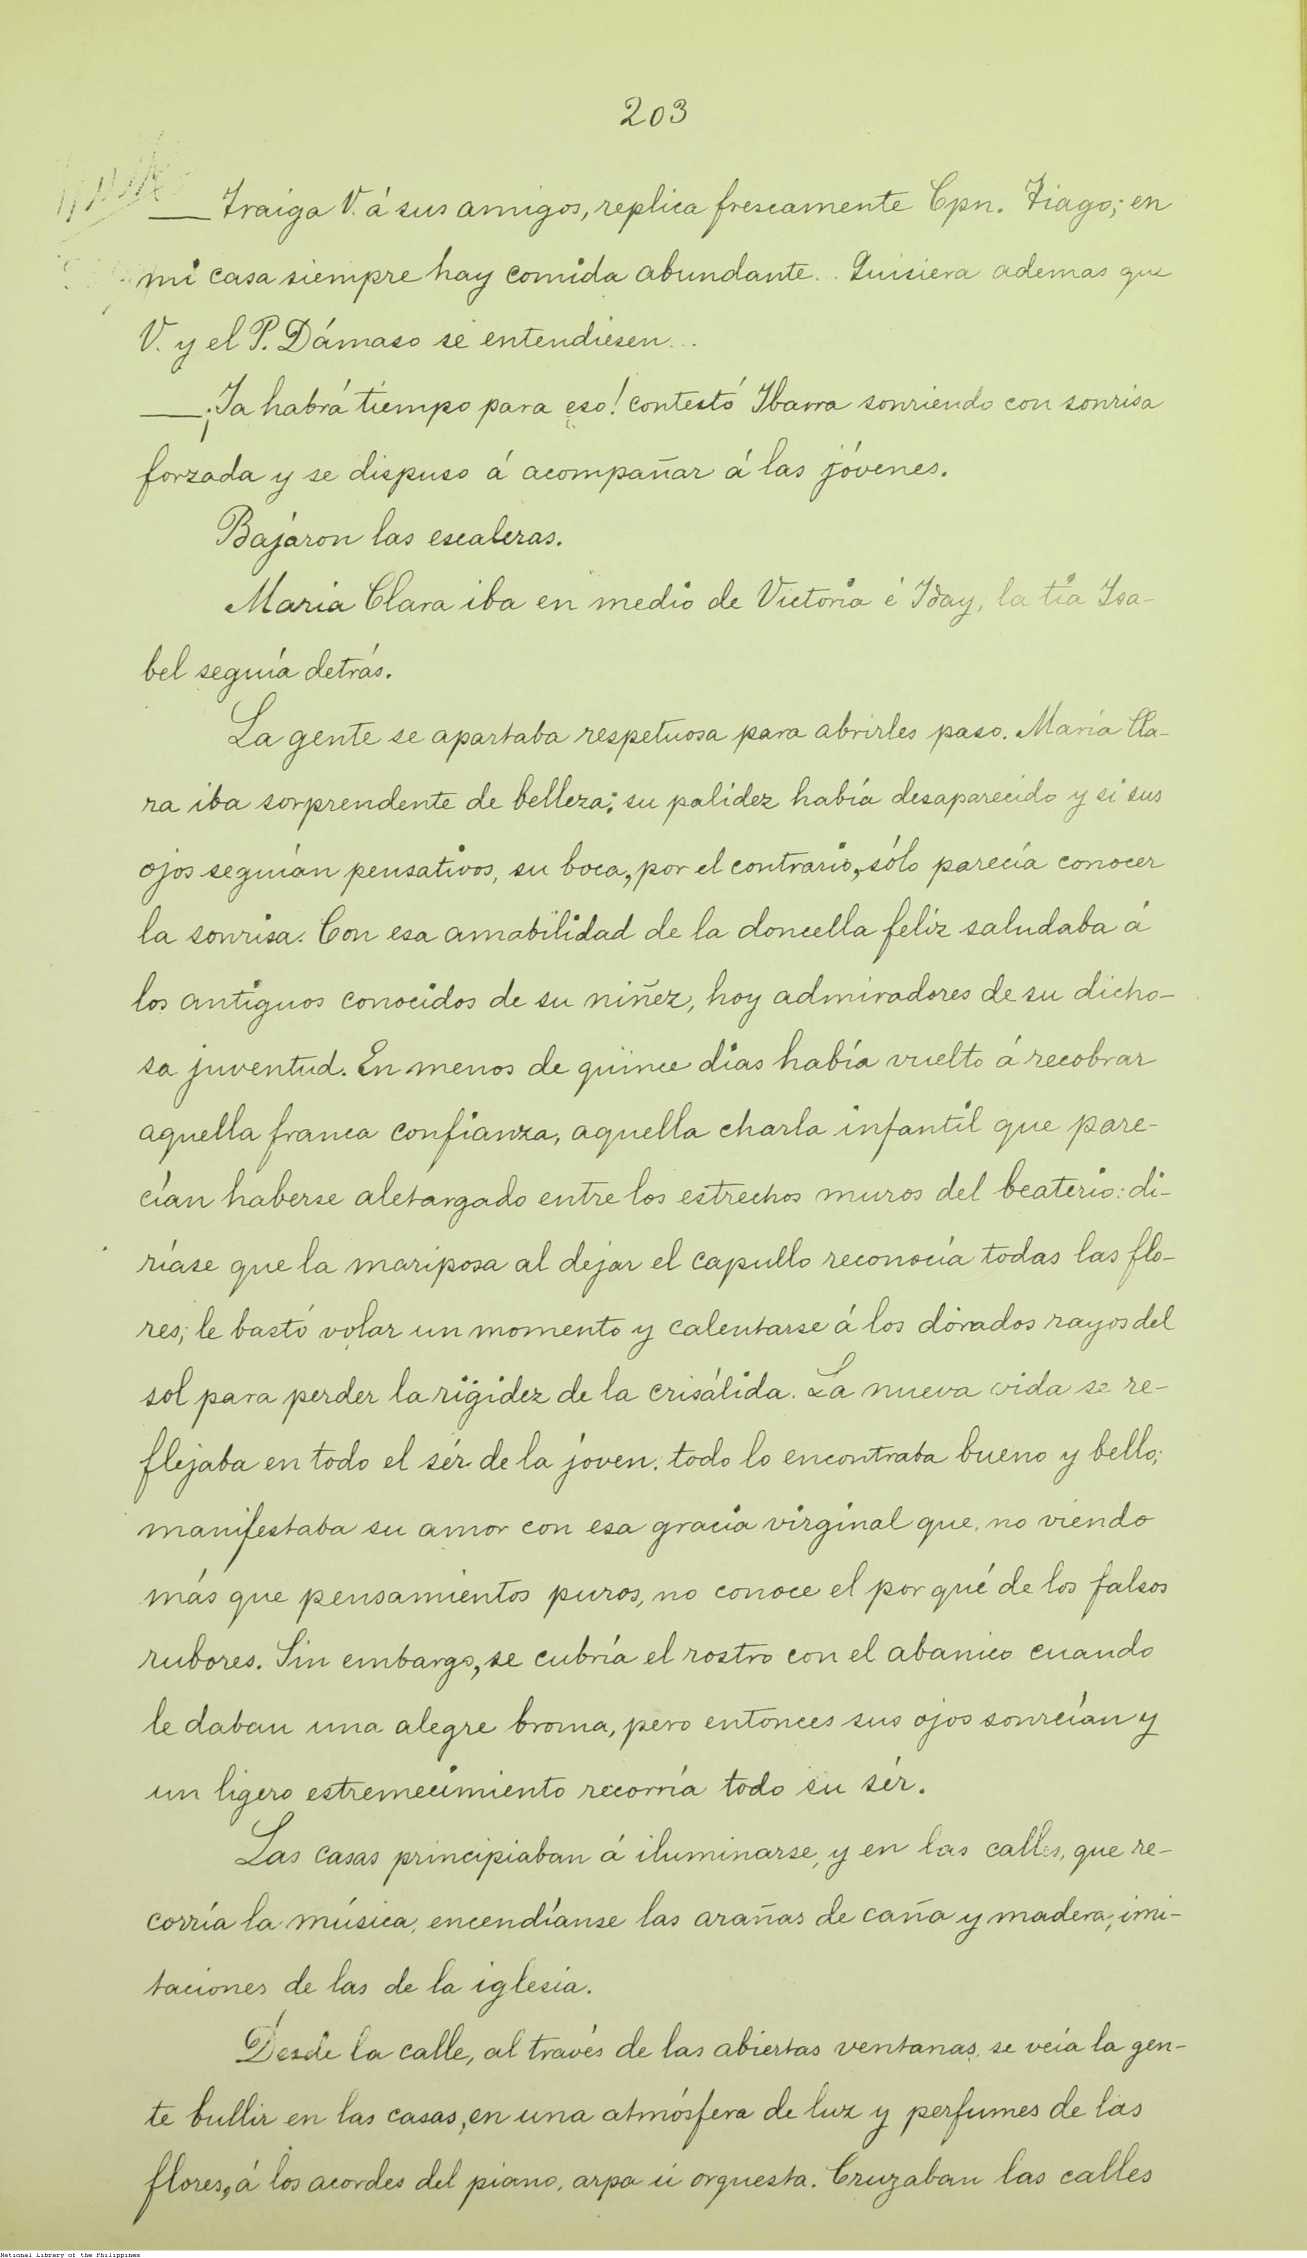 203
— Traiga V. á sus amigos, replica frescamente Cpn. Tiago; en
mi casa siempre hay comida abundante... Quisiera ademas que
V. y el P. Dámaso se entendiesen...
— ¡Ya habrá tiempo para eso! contestó Ibarra sonriendo con sonrisa
forzada y se dispuso á acompañar á las jóvenes.
Bajaron las escaleras.
Maria Clara iba en medio de Victoria é Iday, la tia Isa-
bel seguía detrás.
La gente se apartaba respetuosa para abrirles paso. María Cla-
ra iba sorprendente de belleza; su palidez había desaparecido y si sus
ojos seguían pensativos, su boca, por el contrario, sólo parecía conocer
la sonrisa. Con esa amabilidad de la doncella feliz saludaba á
los antiguos conocidos de su niñez, hoy admiradores de su dicho-
sa juventud. En menos de quince días había vuelto á recobrar
aquella franca confianza, aquella charla infantil que pare-
cían haberse aletargado entre los estrechos muros del beaterio: di-
ríase que la mariposa al dejar el capullo reconocía todas las flo-
res; le bastó volar un momento y calentarse á los dorados rayos del
sol para perder la rigidez de la crisálida. La nueva vida se re-
flejaba en todo el sér de la joven: todo lo encontraba bueno y bello;
manifestaba su amor con esa gracia virginal que, no viendo
más que pensamientos puros, no conoce el por qué de los falsos
rubores. Sin embargo, se cubría el rostro con el abanico cuando
le daban una alegre broma, pero entonces sus ojos sonreían y
un ligero estremecimiento recorría todo su sér.
Las casas principiaban á iluminarse, y en las calles, que re-
corría la música, encendíanse las arañas de caña y madera, imi-
taciones de las de la iglesia.
Desde la calle, al través de las abiertas ventanas, se veía la gen-
te bullir en las casas, en una atmósfera de luz y perfumes de las
flores, á los acordes del piano, arpa ú orquesta. Cruzaban las calles
National Library of the Philippines